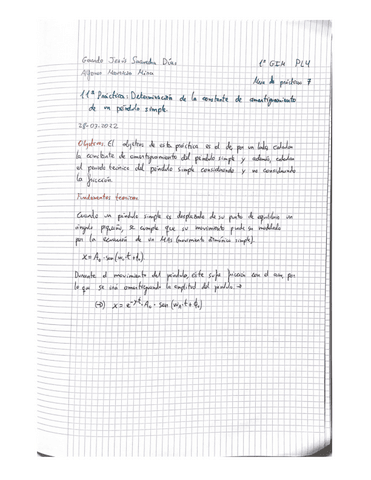 Gerardo Jesús Saavedra Días 1º GIM PL4
Alfonso Mina Mesa de prácticas 7
11ª Práctica: Determinación de la constante de amortiguamiento
de un péndulo simple.
28-03-2022
Objetivos: El objetivo de esta práctica es el de, por un lado, calcular
la constante de amortiguamiento del péndulo simple y además, calcular
el periodo teórico del péndulo simple considerando y no considerando
la fricción.
Fundamentos teóricos:
Cuando un péndulo simple es desplazado de su punto de equilibrio un
ángulo pequeño, se cumple que su movimiento puede ser modelado
por la ecuación de un MAS (movimiento armónico simple).
x = A₀ · sen (w₀ t + φ₀)
Durante el movimiento del péndulo, este sufre fricción con el aire, por
lo que se irá amortiguando la amplitud del péndulo. →
(→) x = e^-γt · A₀ · sen (w₁ · t + φ₀)